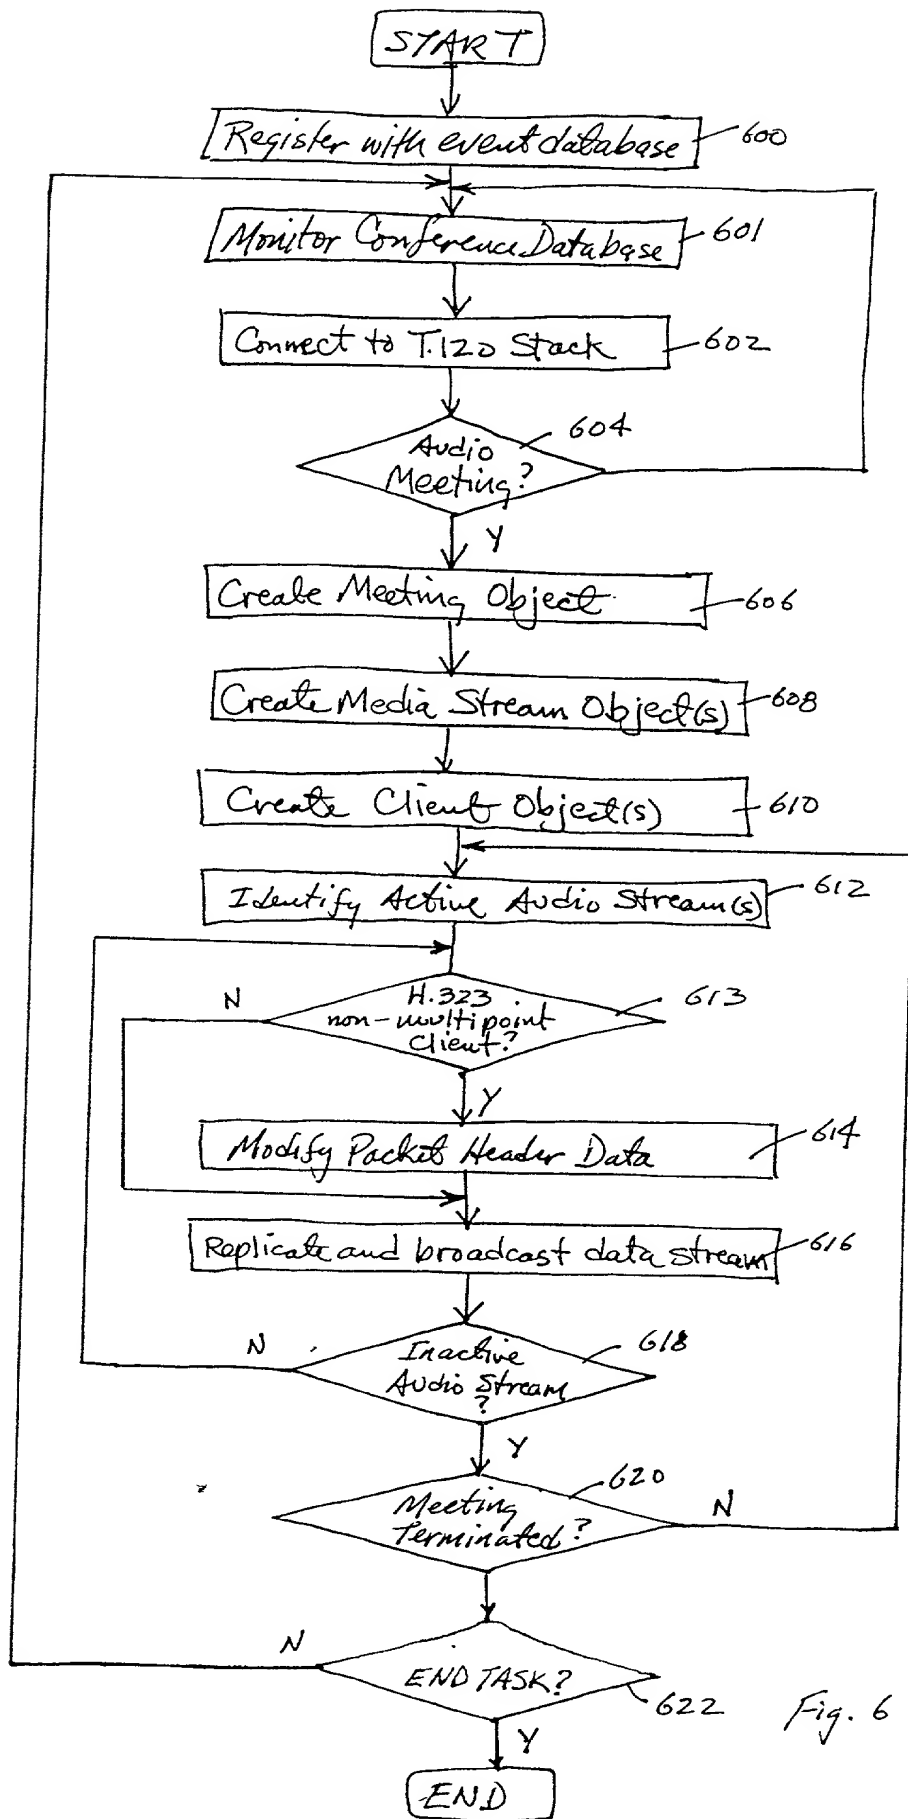 START
Register with event database
600
Monitor Conference Database
601
Connect to T.120 Stack
602
604
Audio
Meeting?
Y
Create Meeting Object
606
Create Media Stream Object(s)
608
Create Client Object(s)
610
Identify Active Audio Stream(s)
612
N
H.323
non-multipoint
Client?
613
Y
Modify Packet Header Data
614
Replicate and broadcast data stream
616
N
Inactive
Audio Stream
?
618
Y
620
Meeting
Terminated?
N
N
END TASK?
622
Fig. 6
Y
END